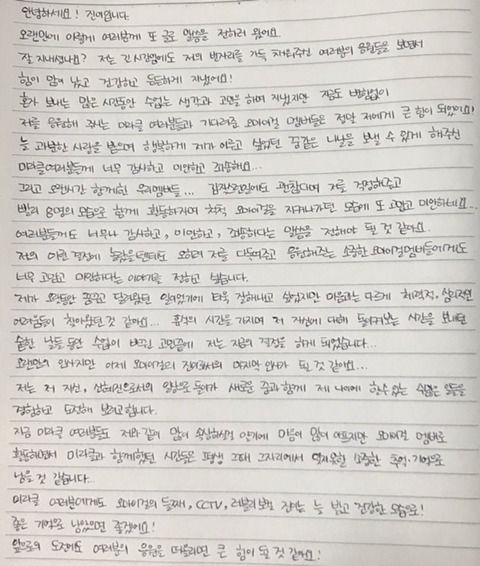 안녕하세요! 진이입니다.
오랜만에 이렇게 여러분께 또 글로 말씀을 전하러 왔어요.
잘 지내셨나요? 저는 긴 시간임에도 저의 빈자리를 가득 채워주신 여러분의 응원들을 보면서
힘이 많이 났고 건강하고 든든하게 지냈어요!
혼자 보내는 많은 시간동안 수많은 생각과 고민을 하며 지냈지만 지금도 변함없이
저를 응원해 주시는 미라클 여러분들과 기다려준 오마이걸 멤버들은 정말 저에게 큰 힘이 되었어요!
늘 과분한 사랑을 받으며 행복하게 제가 이루고 싶었던 꿈같은 나날을 보낼 수 있게 해주신
미라클여러분들께 너무 감사하고 미안하고 죄송해요...
그리고 오랜시간 함께한 우리멤버들... 갑작스러웠음에도 괜찮다며 저를 걱정해주고
빛의 8명의 모습으로 함께 활동하자며 척척 오마이걸을 지켜나가던 모습에 또 고맙고 미안하네요...
여러분들께도 너무나 감사하고, 미안하고, 죄송하다는 말씀을 전해야 될 것 같아요.
저의 이런 결정에 놀랐을텐데도 오히려 저를 다독여주고 응원해주는 소중한 오마이걸멤버들에게도
너무 고맙고 미안하다는 이야기를 전하고 싶습니다.
제가 오랫동안 꿈꾸고 달려왔던 일이었기에 더욱 잘해내고 싶었지만 마음과는 다르게 체력적, 심리적인
어려움들이 찾아왔던 것 같아요... 휴식의 시간을 가지며 저 자신에 대해 돌아켜보는 시간을 보내던
숱한 날들 동안 수없이 반복된 고민끝에 저는 지금의 결정을 하게 되었습니다...
오랜만의 인사지만 이제 오마이걸의 진이로서의 마지막 인사가 될 것 같아요...
저는 저 자신, 신혜진으로서의 일상으로 돌아가 새로운 꿈과 함께 제 나이에 할수있는 수많은 일들을
경험하고 도전해 보려고합니다.
지금 미라클 여러분들도 저와 같이 많이 속상하실걸 알기에 마음이 많이 아프지만 오마이걸 멤버로
활동하면서 미라클과 함께했던 시간들은 평생 그때 그자리에서 잊지못할 소중한 추억·기억으로
남을 것 같습니다..
미라클 여러분에게도 오마이걸의 둘째, CCTV, 러블리보컬 진이는 늘 밝고 건강한 모습으로!
좋은 기억으로 남았으면 좋겠어요!
앞으로의 도전에도 여러분의 응원을 떠올리면 큰 힘이 될 것 같아요!